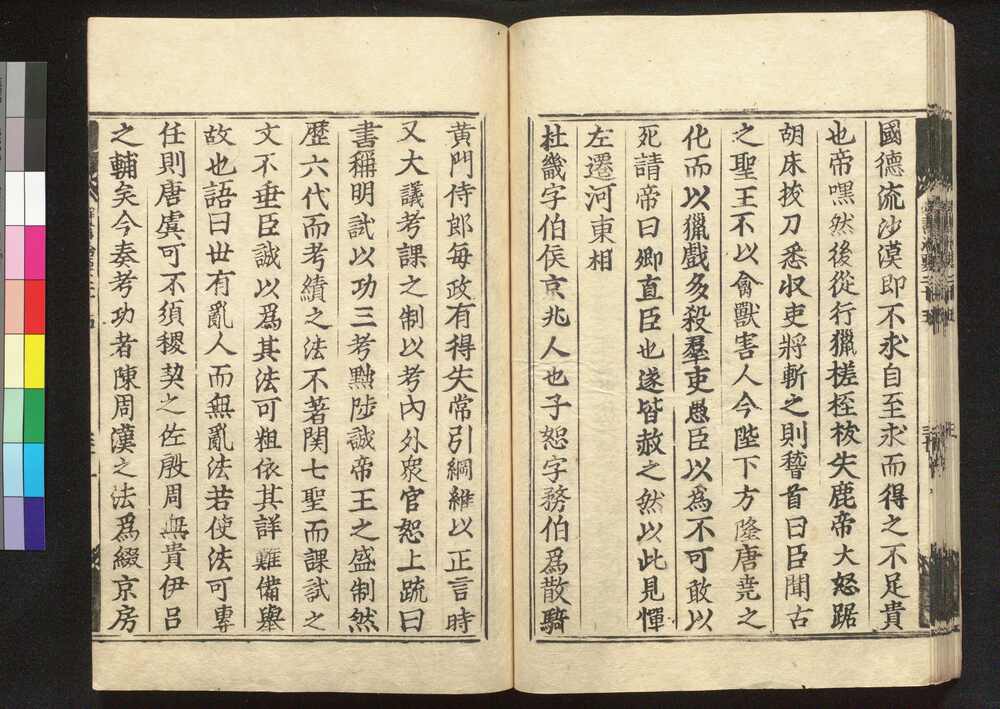 國德流沙漠即不求自至求而得之不足貴
也帝嘿然後從行獵槎桎栊失鹿帝大怒踞
胡床拔刀悉収吏將斬之則稽首曰臣聞古
之聖王不以禽獸害人今陛下方隆唐尭之
化而以獵戲多殺羣吏愚臣以為不可敢以
死請帝曰卿直臣也遂皆赦之然以此見憚
左遷河東相
杜畿字伯侯京兆人也子恕字務伯為散騎
黄門侍郎每政有得失常引綱維以正言時
又大議考課之制以考內外衆官恕上䟽曰
書稱明試以功三考黜陟誠帝王之盛制然
歷六代而考績之法不著関七聖而課試之
文不垂臣誠以為其法可粗依其詳難備舉
故也語曰世有亂人而無亂法若使法可專
任則唐虞可不須稷契之佐殷周無貴伊呂
之輔矣今奏考功者陳周漢之法為綴京房